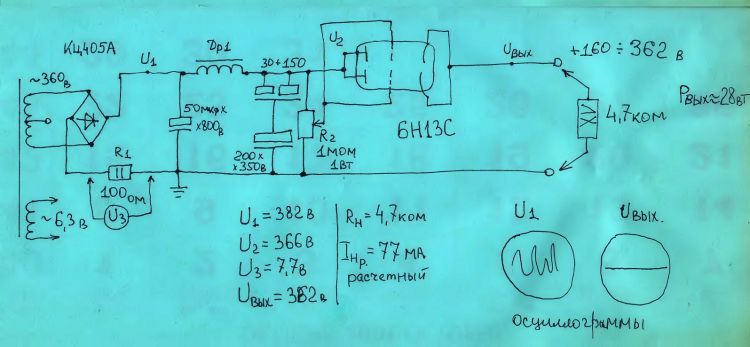 КЦ405А
U1
Др1
30+150
U2
Uвых
+160÷362 в
~360в
50мкф х
х800в
R2
1 мом
1 вт
6Н13С
4,7ком
Рвых≈28вт
200х
х350в
R1
100ом
U3
~6,3в
U1 = 382в
U2 = 366в
U3 = 7,7в
Uвых = 362в
Rн = 4,7ком
Iнр = 77 ма
расчетный
U1
Uвых.
осциллограммы